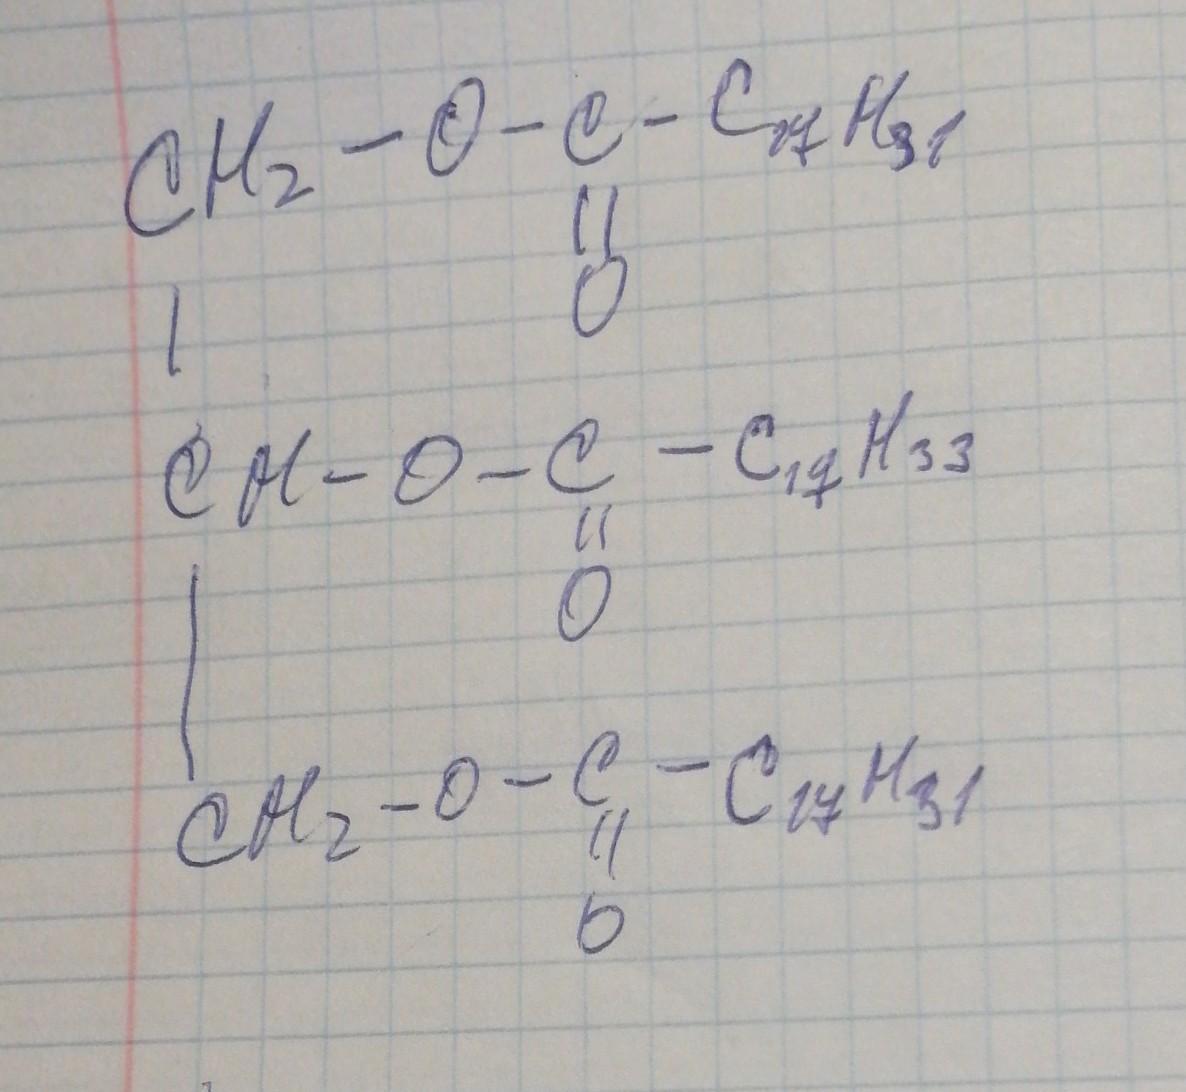 CH₂ – O – C – C₁₇H₃₁
||
O
|
CH – O – C – C₁₇H₃₃
||
O
|
CH₂ – O – C – C₁₇H₃₁
||
O